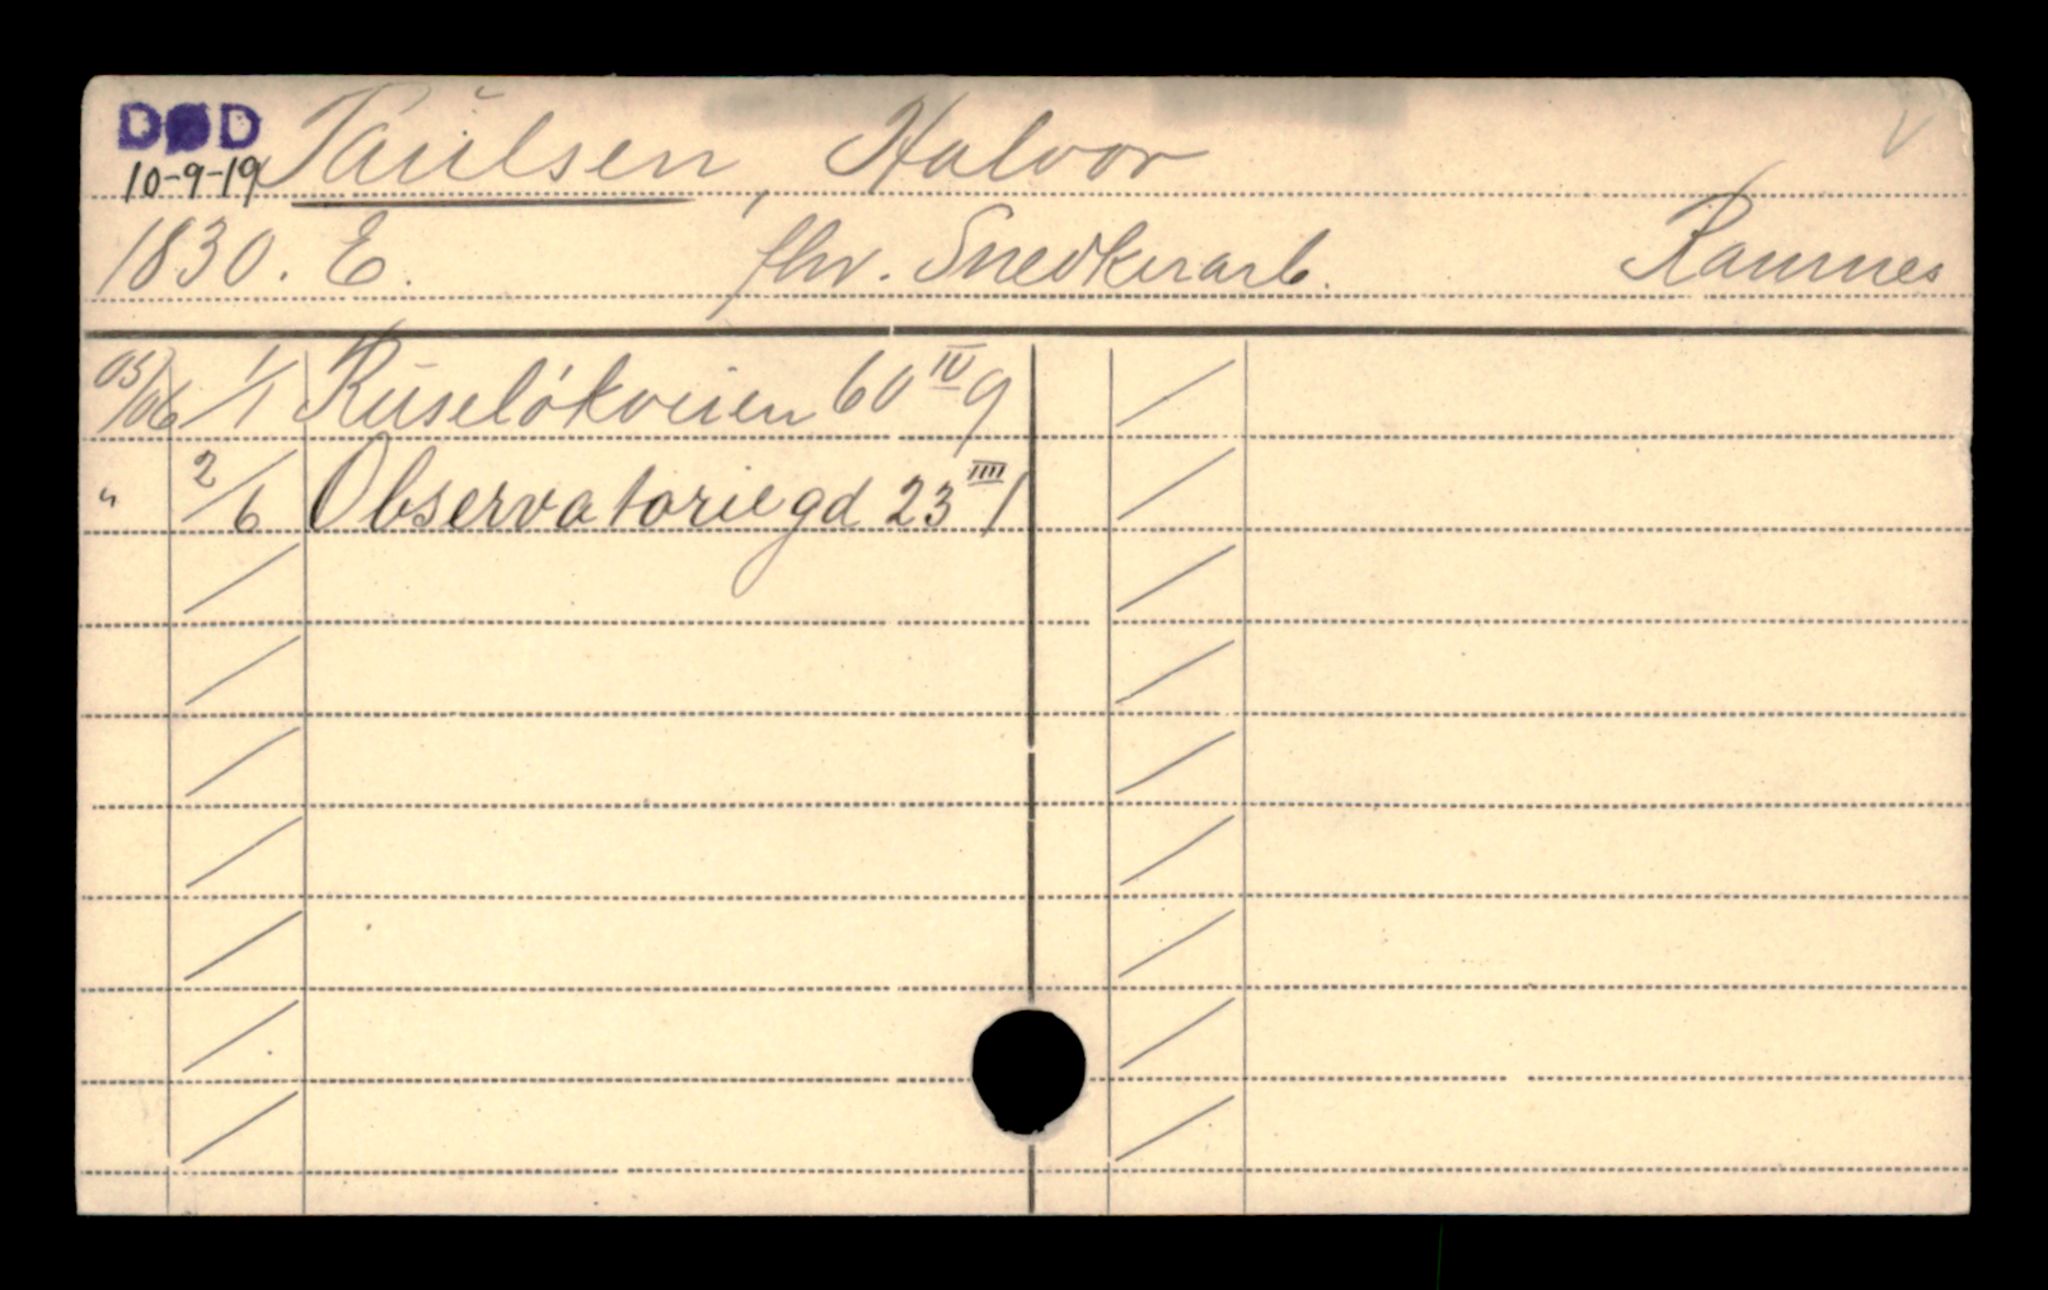 DØD Paulsen, Halvor
10-9-19
1830. E. fhv. Snedkerarb. Ramnes
05/06 1/1 Ruseløkveien 60 IV g
" 2/6 Observatoriegd 23 IIII /